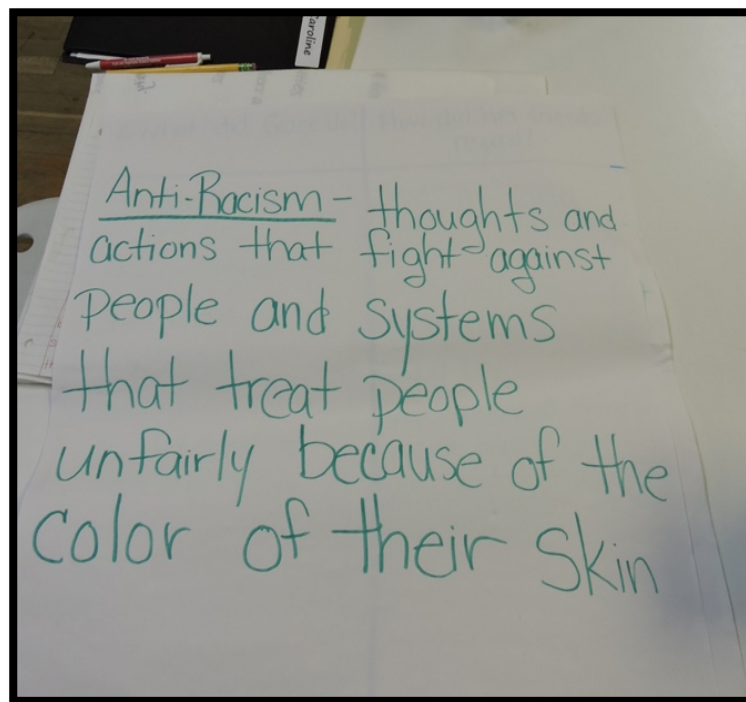 Caroline
Anti-Racism - thoughts and
actions that fight against
people and systems
that treat people
unfairly because of the
color of their skin